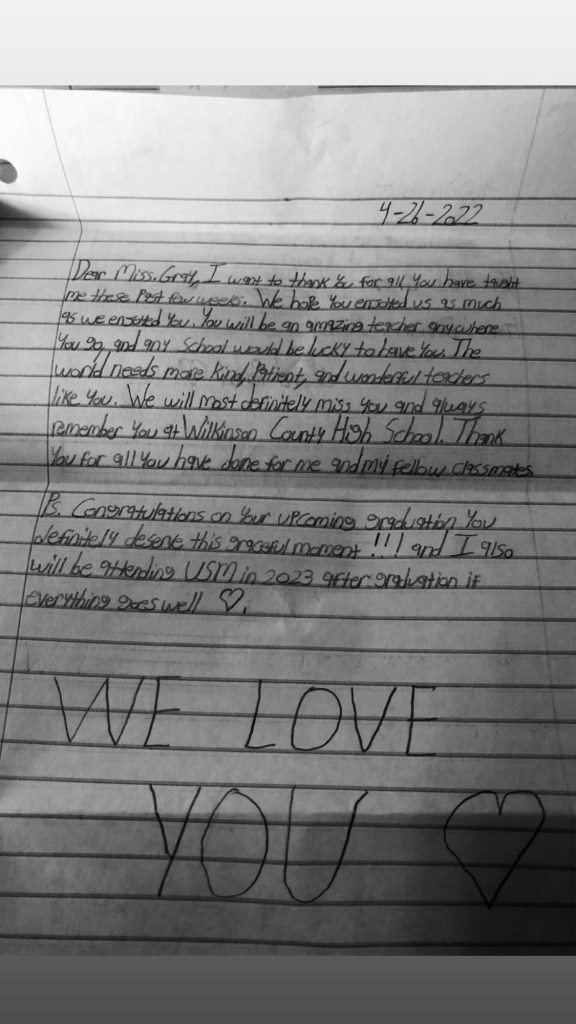 4-26-2022
Dear Miss. Gray, I want to thank you for all you have taught
me these Past few weeks. We hope You enjoyed us as much
as we enjoyed You. You will be an amazing teacher anywhere
You go, and any School would be lucky to have You. The
world needs more kind, Patient, and wonderful teachers
like You. We will most definitely miss you and always
remember You at Wilkinson County High School. Thank
You for all You have done for me and my fellow classmates
Ps. Congratulations on Your upcoming graduation You
definitely deserve this graceful moment !!! and I also
will be attending USM in 2023 after graduation if
everything goes well ♡.
WE LOVE
YOU ♡